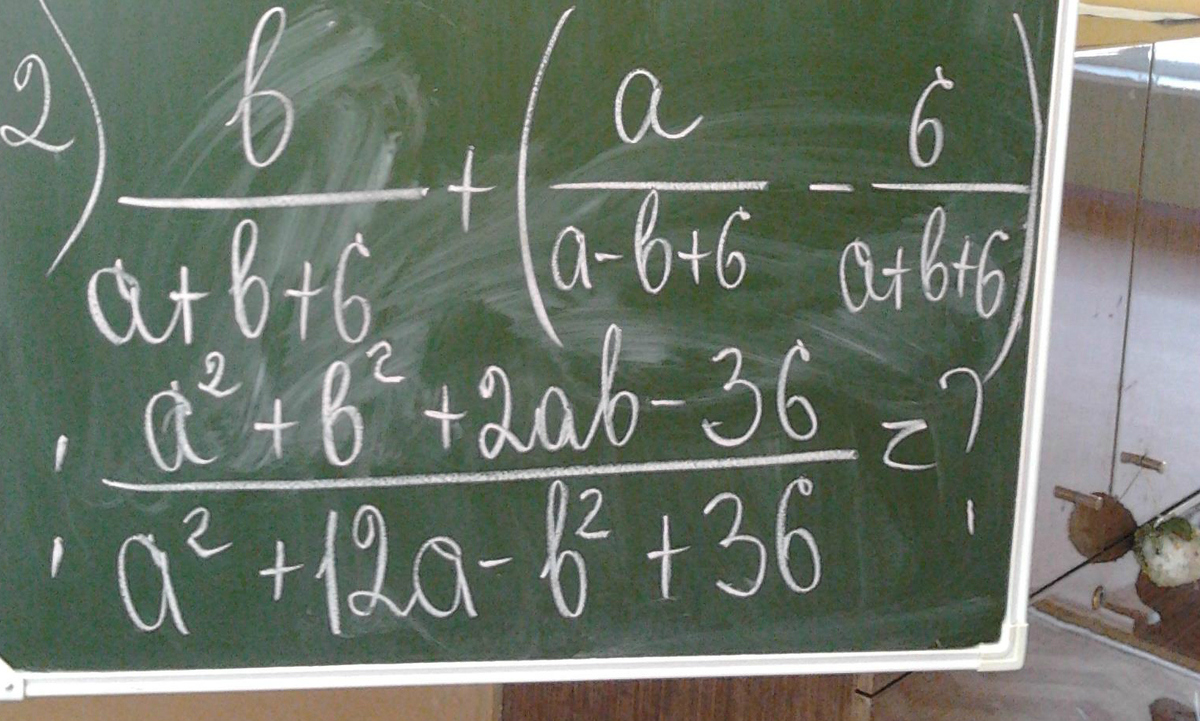 2) \frac{b}{a+b+6} + \left( \frac{a}{a-b+6} - \frac{6}{a+b+6} \right)
: \frac{a^2+b^2+2ab-36}{a^2+12a-b^2+36} = ?